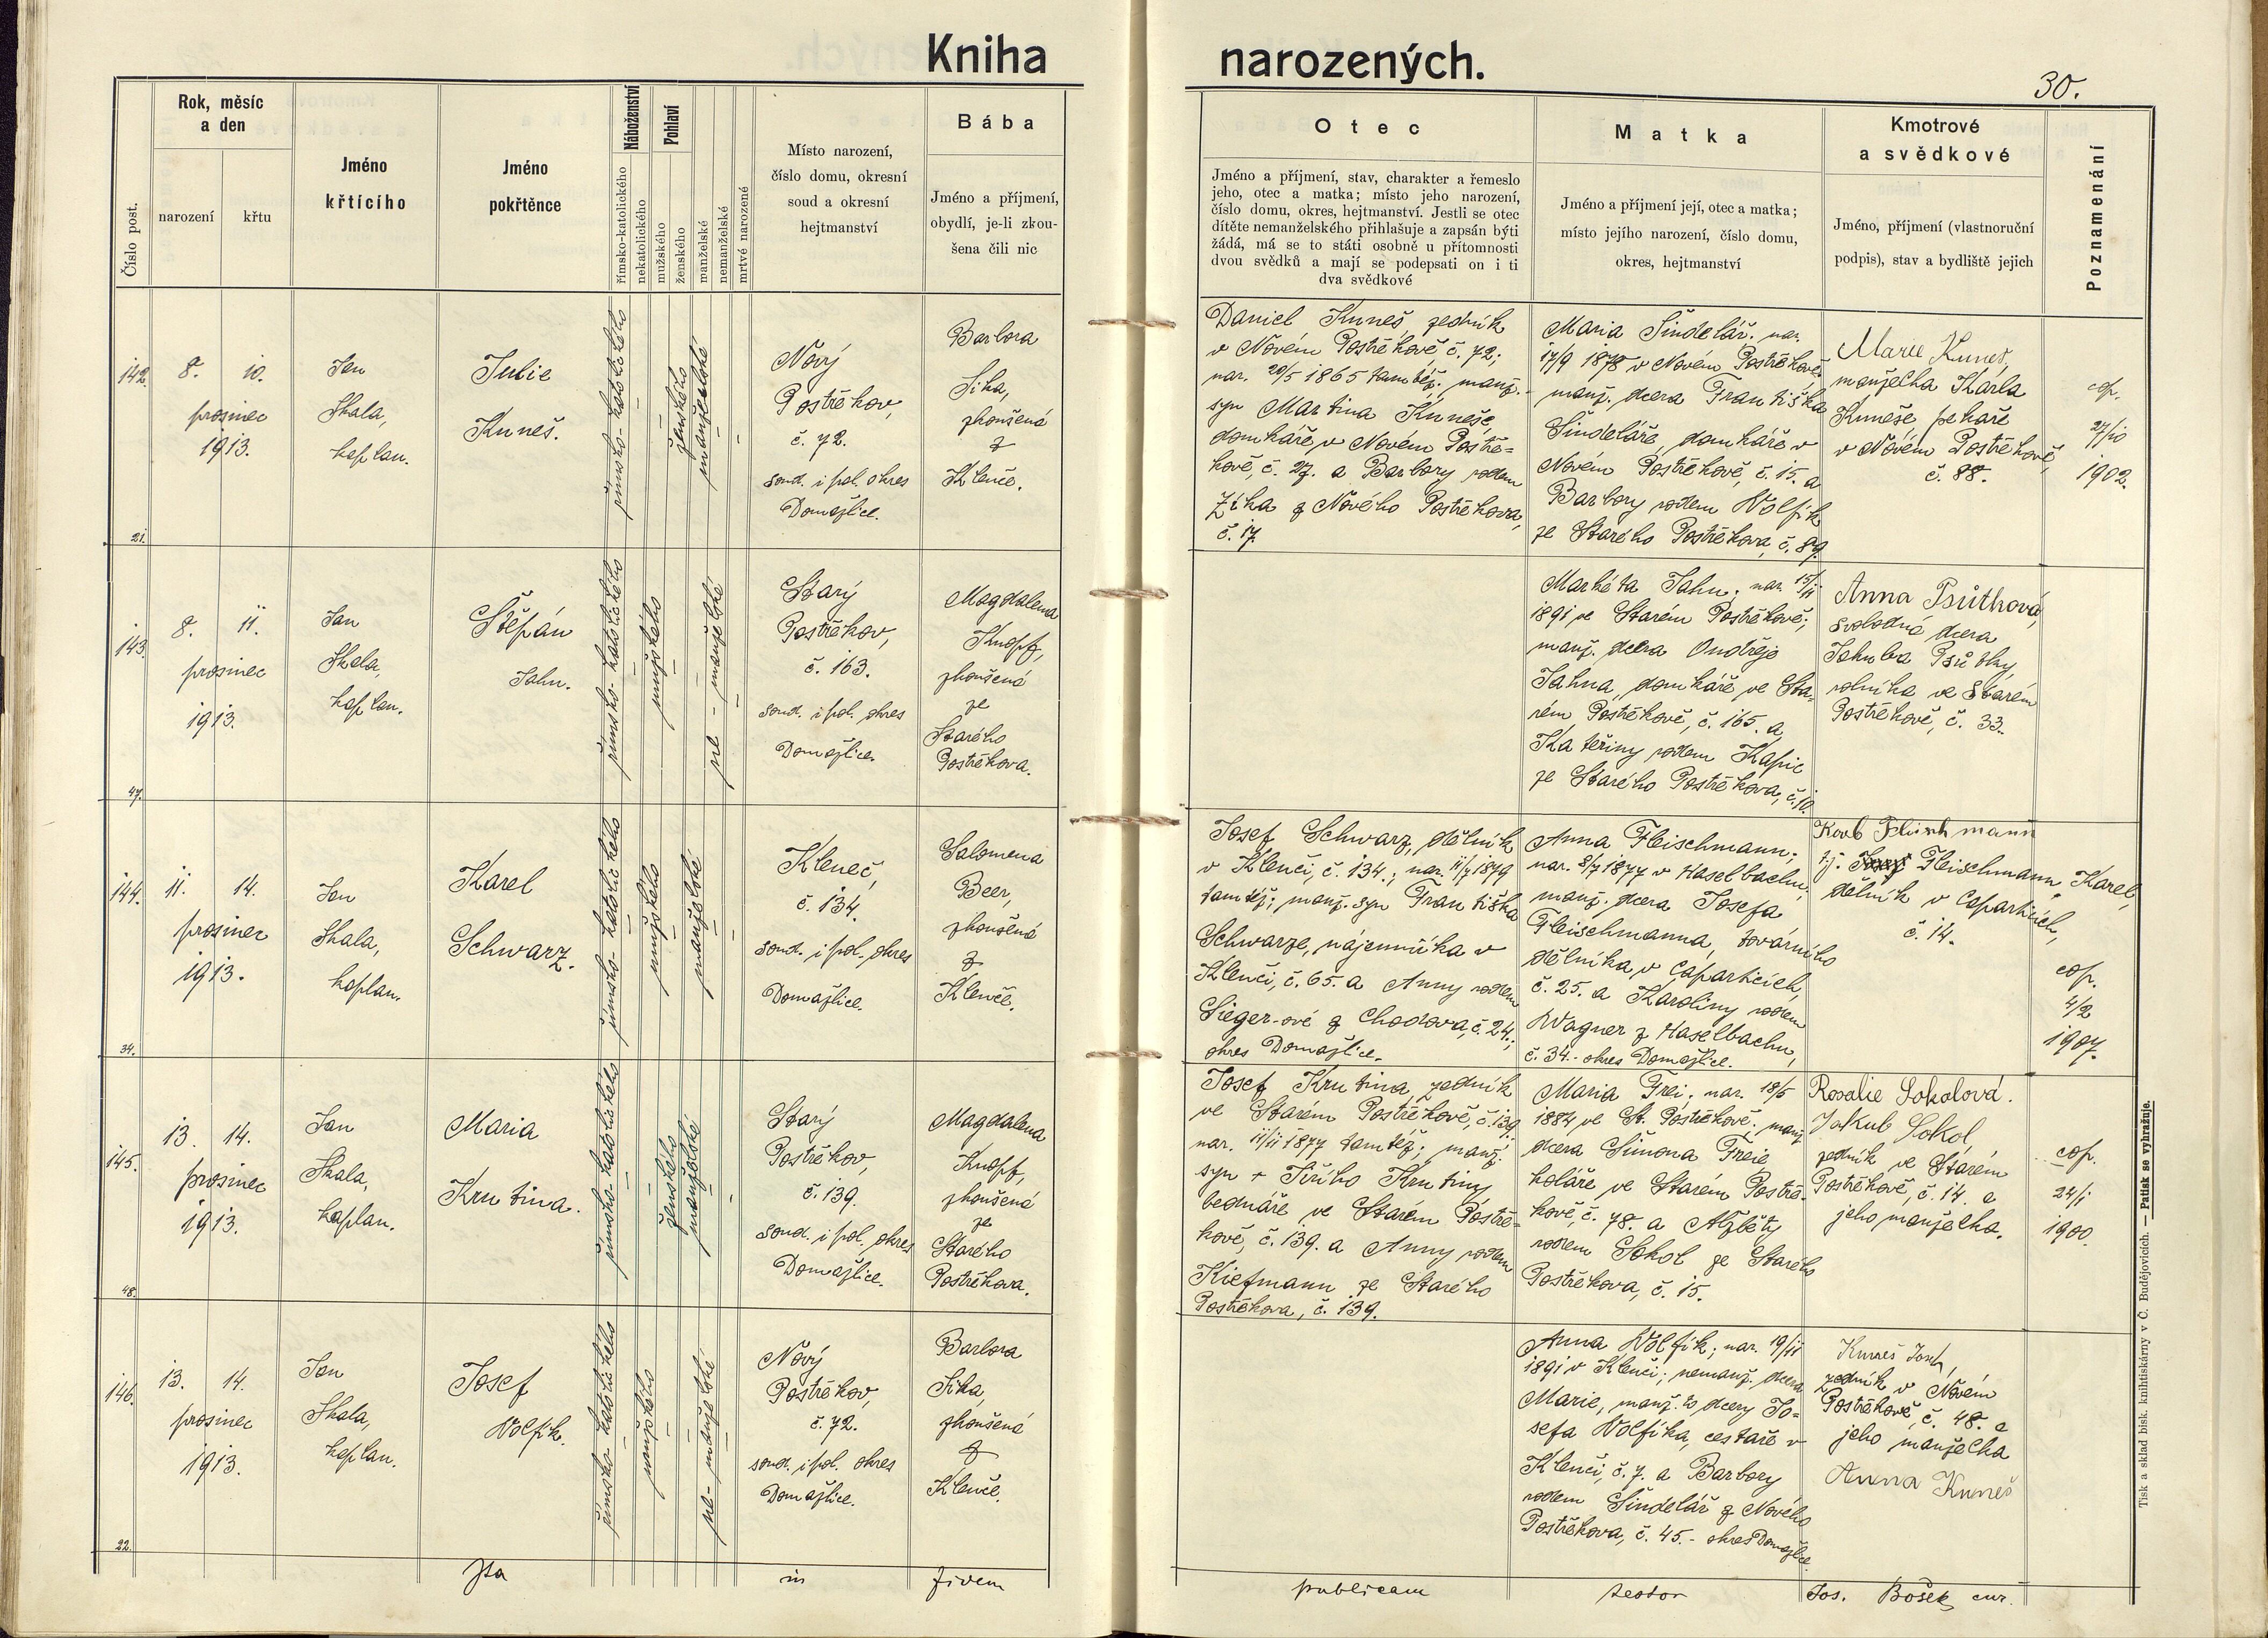 Kniha narozených.
30.
Číslo post.
Rok, měsíc
a den
narození
křtu
Jméno
křtícího
Jméno
pokřtěnce
Náboženství
římsko-katolického
nekatolického
Pohlaví
mužského
ženského
manželské
nemanželské
mrtvé narozené
Místo narození,
číslo domu, okresní
soud a okresní
hejtmanství
Bába
Jméno a příjmení,
obydlí, je-li zkou-
šena čili nic
Otec
Jméno a příjmení, stav, charakter a řemeslo
jeho, otec a matka; místo jeho narození,
číslo domu, okres, hejtmanství. Jestli se otec
dítěte nemanželského přihlašuje a zapsán býti
žádá, má se to státi osobně u přítomnosti
dvou svědků a mají se podepsati on i ti
dva svědkové
Matka
Jméno a příjmení její, otec a matka;
místo jejího narození, číslo domu,
okres, hejtmanství
Kmotrové
a svědkové
Jméno, příjmení (vlastnoruční
podpis), stav a bydliště jejich
Poznamenání
142.
8. 10.
prosinec
1913.
21.
Jan
Skala,
kaplan.
Julie
Kuneš.
římsko-katolického
ženského
manželské
Nový
Postřekov,
č. 72.
soud. i pol. okres
Domažlice.
Barbora
Sika,
zkoušená
z
Klenče.
Daniel Kuneš, zedník
v Novém Postřekově, č. 72;
nar. 20/5 1865 tamtéž; manž.
syn Martina Kuneše,
domkáře v Novém Postře=
kově, č. 27. a Barbory rodem
Zíka z Nového Postřekova,
č. 17.
Maria Šindelář, nar.
17/9 1878 v Novém Postřekově;
manž. dcera Františka
Šindeláře, domkáře v
Novém Postřekově, č. 15. a
Barbory rodem Wolfik
ze Starého Postřekova, č. 89.
Marie Kuneš,
manželka Karla
Kuneše, pekaře
v Novém Postřekově,
č. 88.
cop.
27/10
1902.
143.
8. 11.
prosinec
1913.
47.
Jan
Skala,
kaplan.
Štěpán
Jahn.
římsko-katolického
mužského
ne-manželské
Starý
Postřekov,
č. 163.
soud. i pol. okres
Domažlice.
Magdalena
Knopf,
zkoušená
ze
Starého
Postřekova.
Markéta Jahn; nar. 15/11
1891 ve Starém Postřekově;
manž. dcera Ondřeje
Jahna, domkáře ve Sta-
rém Postřekově, č. 165. a
Kateřiny rodem Kapic
ze Starého Postřekova, č. 10.
Anna Psůtková,
svobodná dcera
Jakuba Psůtky,
rolníka ve Starém
Postřekově, č. 33.
144.
11. 14.
prosinec
1913.
34.
Jan
Skala,
kaplan.
Karel
Schwarz.
římsko-katolického
mužského
manželské
Kleneč,
č. 134.
soud. i pol. okres
Domažlice.
Salomena
Beer,
zkoušená
z
Klenče.
Josef Schwarz, dělník
v Klenči, č. 134.; nar. 11/7 1879
tamtéž; manž. syn Františka
Schwarze, nájemníka v
Klenči, č. 65. a Anny rodem
Sieger-ové z Chodova, č. 24.;
okres Domažlice.
Anna Fleischmann;
nar. 8/7 1877 v Haselbachu;
manž. dcera Josefa
Fleischmanna, továrního
dělníka v Caparticích,
č. 25. a Karoliny rodem
Wagner z Haselbachu,
č. 34. - okres Domažlice.
t.j. Fleischmann Karel,
dělník v Caparticích,
č. 14.
cop.
4/2
1907.
145.
13. 14.
prosinec
1913.
48.
Jan
Skala,
kaplan.
Maria
Krutina.
římsko-katolického
ženského
manželské
Starý
Postřekov,
č. 139.
soud. i pol. okres
Domažlice.
Magdalena
Knopf,
zkoušená
ze
Starého
Postřekova.
Josef Krutina, zedník
ve Starém Postřekově, č. 139.
nar. 11/11 1877 tamtéž; manž.
syn + Jiřího Krutiny
bednáře ve Starém Postře-
kově, č. 139. a Anny rodem
Kiefmann ze Starého
Postřekova, č. 139.
Maria Frei; nar. 18/5
1884 ve St. Postřekově; manž.
dcera Šimona Freie
koláře ve Starém Postře-
kově, č. 78. a Alžběty
rodem Sokol ze Starého
Postřekova, č. 15.
Rosalie Sokolová.
Jakub Sokol,
zedník ve Starém
Postřekově, č. 14. a
jeho manželka.
cop.
1900.
146.
13. 14.
prosinec
1913.
22.
Jan
Skala,
kaplan.
Josef
Wolfik.
římsko-katolického
mužského
ne-manželské
Nový
Postřekov,
č. 72.
soud. i pol. okres
Domažlice.
Barbora
Sika,
zkoušená
z
Klenče.
Anna Wolfik; nar. 19/11
1891 v Klenči; nemanž. dcera
Marie, manž. to dcery Jo=
sefa Wolfika, cestaře v
Klenči, č. 7. a Barbory
rodem Šindelář z Nového
Postřekova, č. 45. - okres Domažlice
Kuneš Josef,
zedník v Novém
Postřekově, č. 48. a
jeho manželka
Anna Kuneš
Ita in fidem publicam testor Jos. Bošek, cur.
Tisk a sklad bisk. knihtiskárny v Č. Budějovicích. — Patisk se vyhražuje.